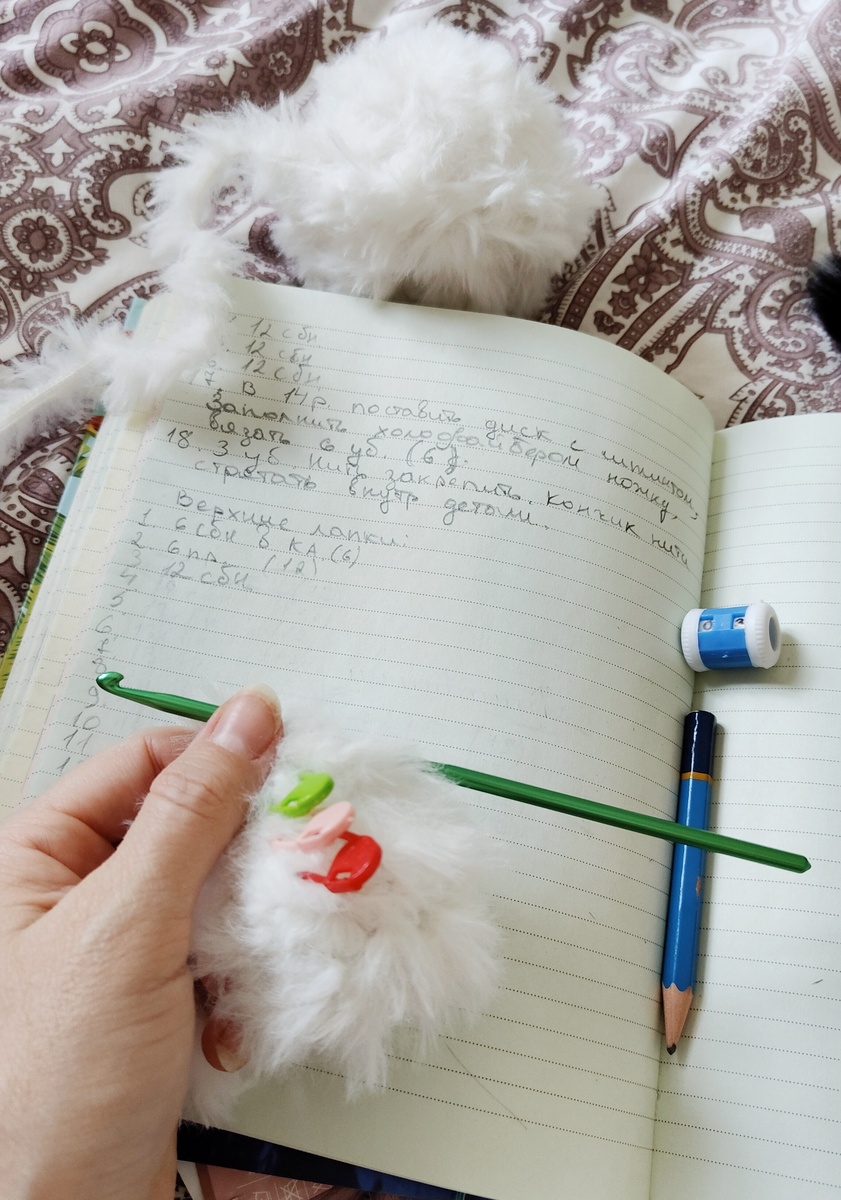 12 сбн
12 сбн
12 сбн
В 14р. поставить диск с шплинтом,
Заполнить холофайбером ножку,
вязать 6 уб. (6).
18. 3 уб. Нить закрепить, кончик нити
спрятать внутр детали.
Верхние лапки:
1. 6 сбн в КА (6)
2. 6 пр. (12)
3 12 сбн
4
5
6
9
10
11